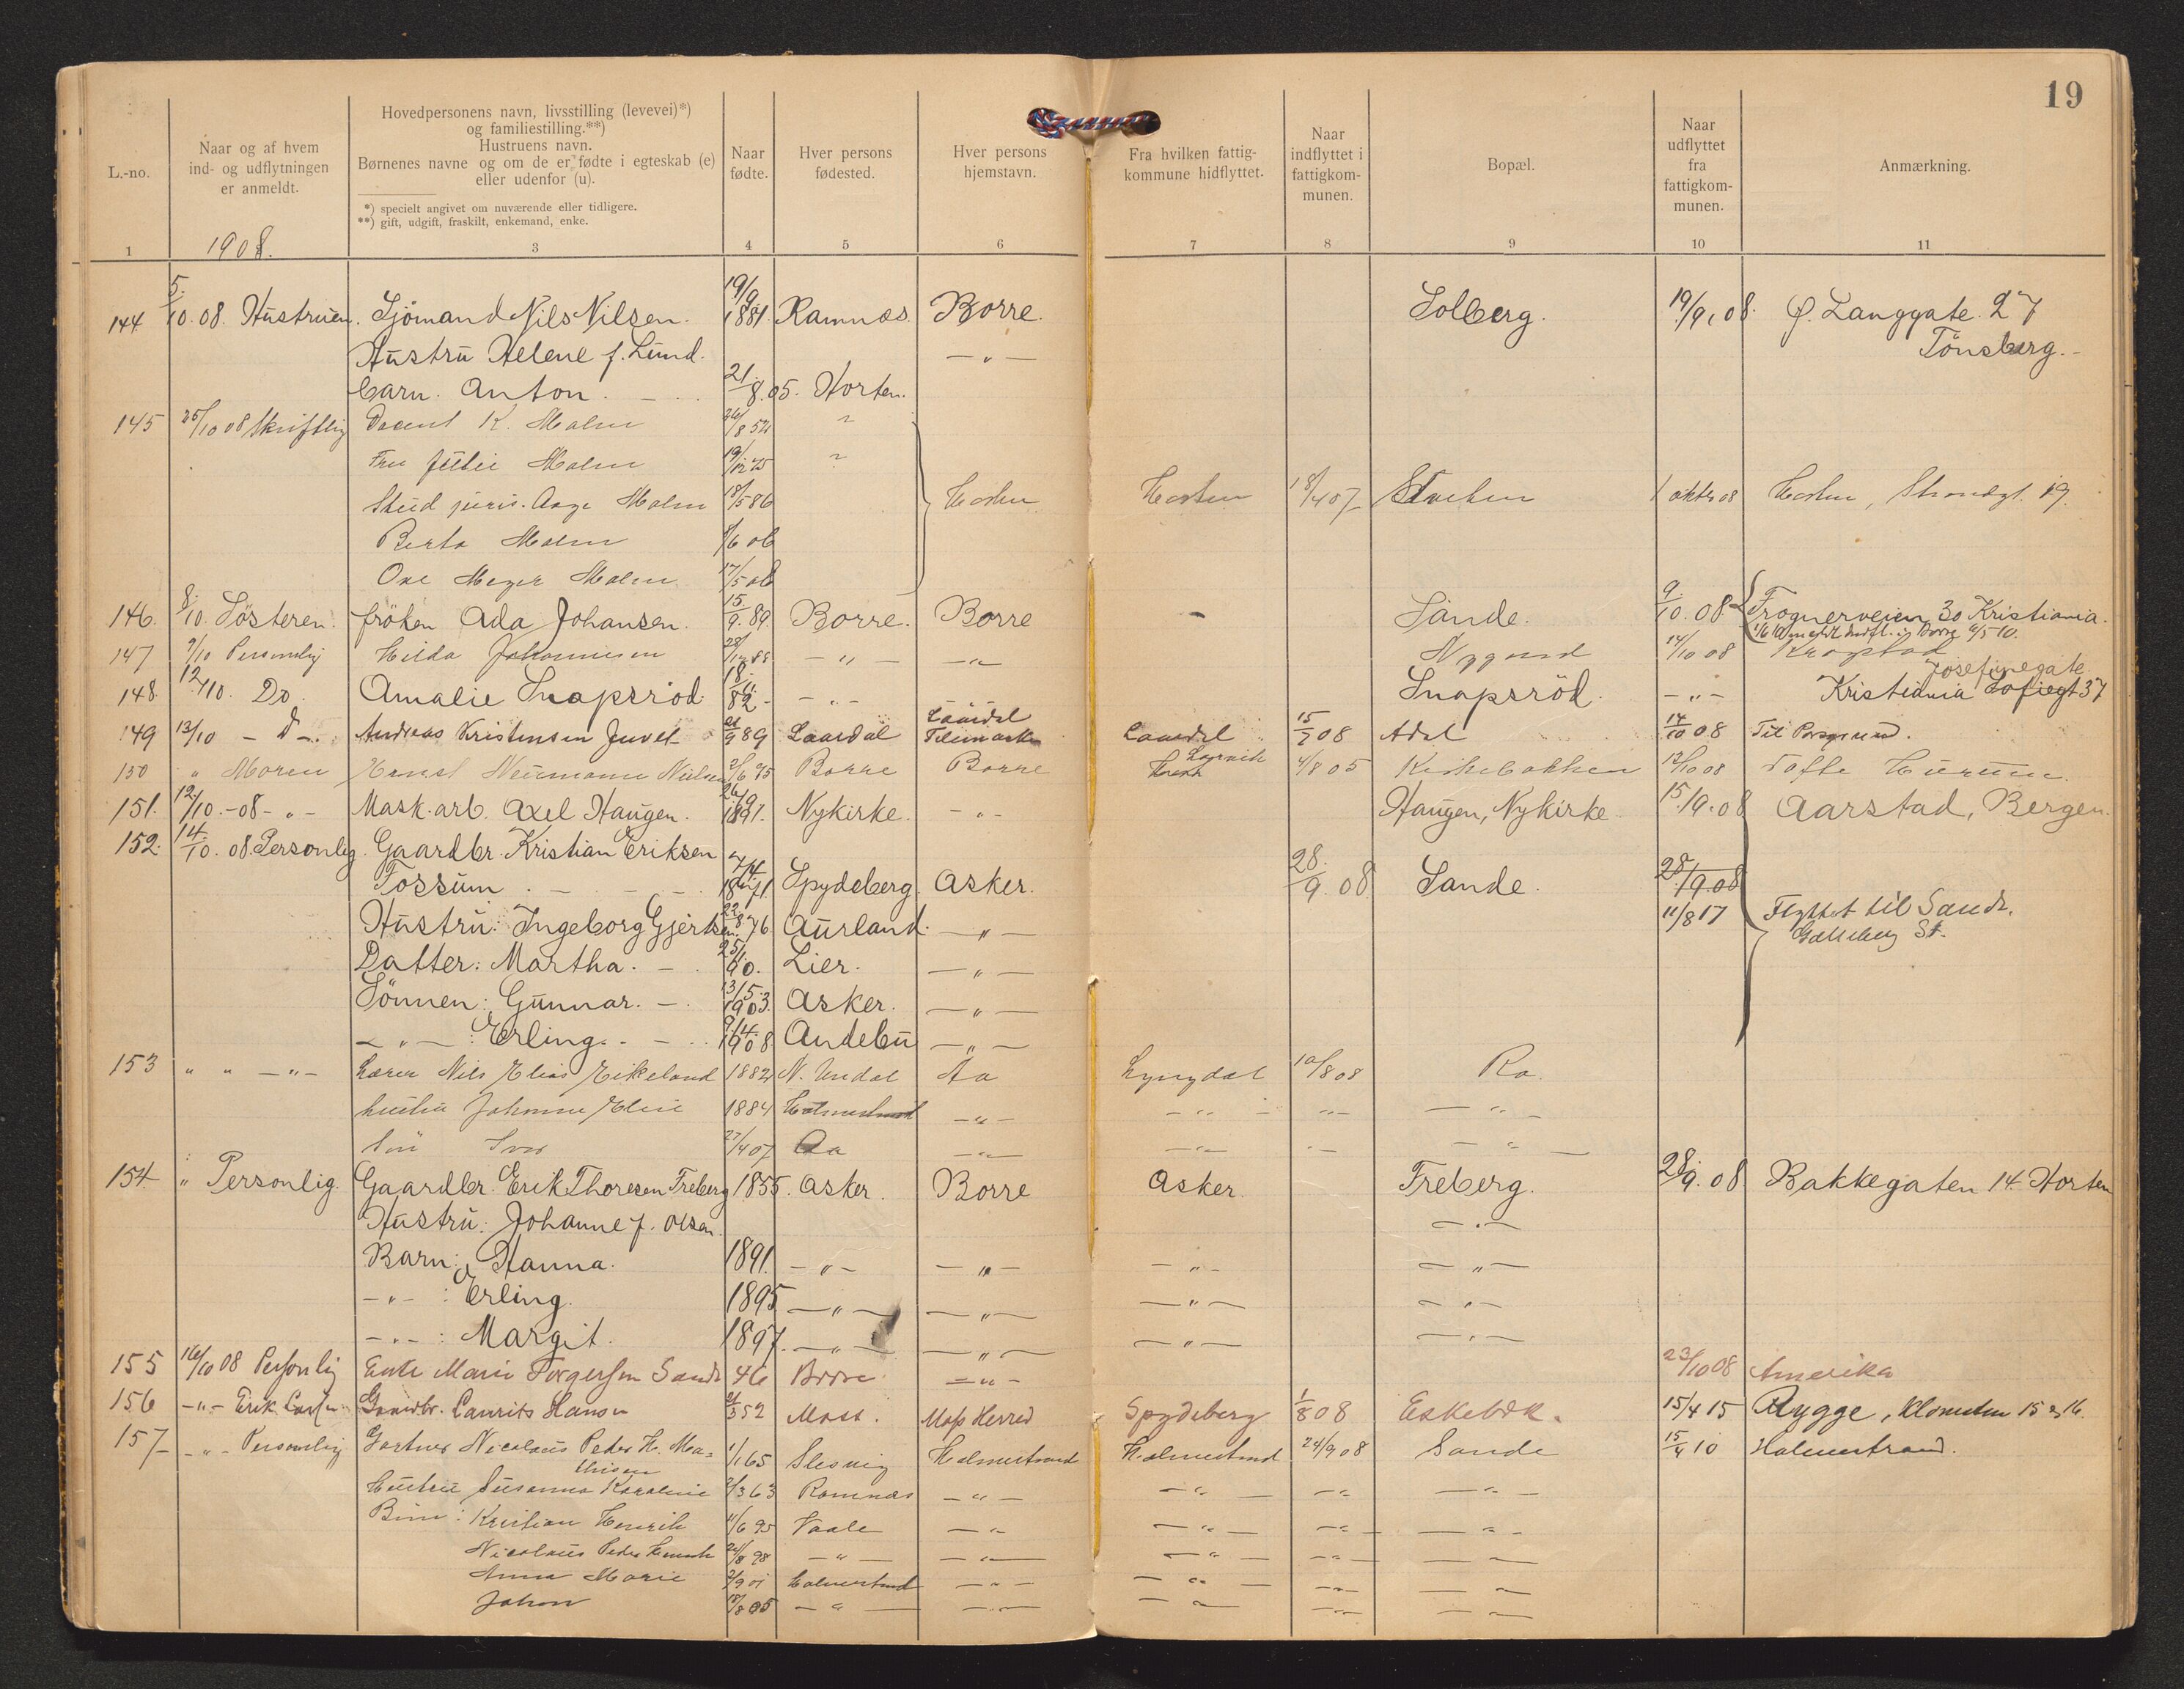 19
L.-no.
Naar og af hvem
ind- og udflytningen
er anmeldt.
Hovedpersonens navn, livsstilling (levevei)*)
og familiestilling.**)
Hustruens navn.
Børnenes navne og om de er fødte i egteskab (e)
eller udenfor (u).
*) specielt angivet om nuværende eller tidligere.
**) gift, udgift, fraskilt, enkemand, enke.
Naar
fødte.
Hver persons
fødested.
Hver persons
hjemstavn.
Fra hvilken fattig-
kommune hidflyttet.
Naar
indflyttet i
fattigkom-
munen.
Bopæl.
Naar
udflyttet
fra
fattigkom-
munen.
Anmærkning.
1 1908. 3 4 5 6 7 8 9 10 11
144 5/10.08. Hustruen. Sjömand Nils Nilsen. 19/9 1881. Ramnæs. Borre. Solberg. 19/9.08. Ø. Langgate 27
Hustru Helene f. Lund. — " — Tönsberg.
barn. Anton. 21/8.05. Horten.
145 25/10 08 Skriftlig Docent K. Malm "
Fru Julie Malm "
Stud juris. Aage Malm 18/5 86 Horten Horten 18/4 07 1 oktbr 08 Horten, Strandgt. 19.
Berta Malm
Malm
146. 8/10. Sösteren. fröken Ada Johansen. 15/9.89. Borre. Borre - Sande. 9/10.08. Frognerveien 30 Kristiania.
147 9/10 Personlig Hilda Johannesen — " — — " — Nygaard 14/10 08
148. 12/10. Do Amalie Snapsröd. — " — Snapsröd. — " — Kristiania Sofiegt 37
Josefinegate
149 13/10 — D — Andreas Kristensen Juvet 21/9 89 Laardal Laardal Telemarken Laardal 15/2 08 Adal 14/10 08 Til Porsgrund.
150 " Moren Ernst Neumann Nielsen 2/6 95 Borre Borre 4/8 05 Kirkebakken 12/10 08 Tofte Hurum.
151. 12/10.-08- " - Mask.arb. Axel Haugen. Nykirke. — " — Haugen, Nykirke 15./9.08 Aarstad, Bergen.
152. 14/10.08. Personlig. Gaardbr. Kristian Eriksen
Fossum Spydeberg. Asker. 28/9.08 Sande. 28/9.08
Hustru: Ingeborg Gjertsen. 22/8 76 Aurland. — " — 11/8 17 Flyttet til Sande.
Datter: Martha. Lier. — " — St.
Sönnen: Gunnar. 13/5. 1903. Asker. — " —
— " — : Erling. 9/4. 1908. Andebu — " —
153 " " — " — Lærer Nils Elias Eikeland 1882 N. Undal Aa Lyngdal 10/8 08 Ra.
hustru Johanne Elise 1884 Holmestrand — " — — " — — " — — " —
Sön Ivar 27/4 07 Aa — " — — " — — " — — " —
154 " Personlig. Gaardbr. Erik Thoresen Freberg 1855. Asker. Borre Asker. Freberg. 28/9.08 Bakkegaten 14. Horten
Hustru: Johanne f. Olsen. — " —
Barn: Hanna. 1891. — " — — " — — " — — " —
— " — : Erling. 1895 — " — — " — — " — — " —
— " — : Margit. 1897. — " — — " — — " — — " —
155 16/10 08 Personlig Enke Marie Torgersen Sande 46 Borre — " — 23/10 08 Amerika
156 — " — Erik Gaardbr. Laurits Hansen 21/3 52 Moss. Moss Herred Spydeberg 1/8 08 Eskebæk. 15/4 15 Rygge,
157 — " — Personlig Gartner Nicolaus Peder H. Ma=
thisen 1/1 65 Slesvig Holmestrand Holmestrand 24/9 08 Sande 15/4 10 Holmestrand.
Hustru Susanna Karoline 2/3 63 Ramnæs — " — — " — — " — — " —
Börn: Kristian Henrik 11/6 95 Vaale — " — — " — — " — — " —
Nicolaus Peder Henrik 24/8 98 — " — — " — — " — — " — — " —
Anna Marie 2/9 01 Holmestrand — " — — " — — " — — " —
Johan 18/8 05 — " — — " — — " — — " — — " —